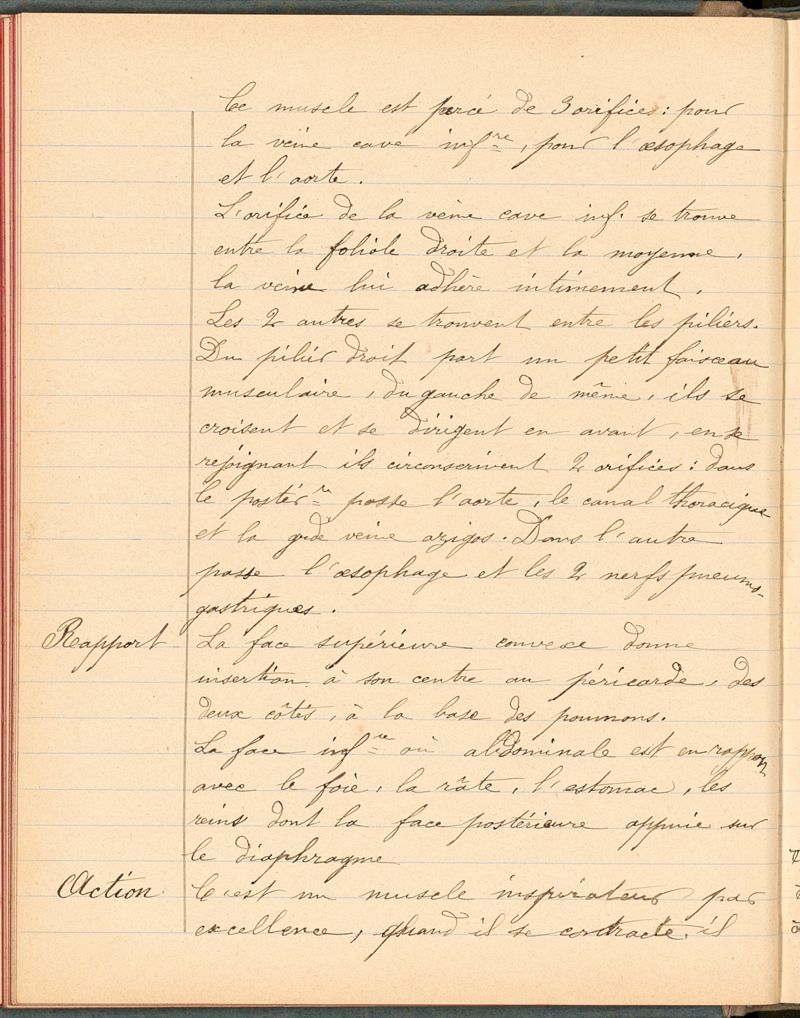 Ce muscle est percé de 3 orifices : pour
la veine cave inf.re, pour l'œsophage
et l'aorte.
L'orifice de la veine cave inf. se trouve
entre la foliole droite et la moyenne,
la veine lui adhère intimement.
Les 2 autres se trouvent entre les piliers.
Du pilier droit part un petit faisceau
musculaire, du gauche de même, ils se
croisent et se dirigent en avant, en se
rejoignant ils circonscrivent 2 orifices : dans
le postér.re passe l'aorte, le canal thoracique
et la gde veine azigos. Dans l'autre
passe l'œsophage et les 2 nerfs pneumo-
gastriques.
Rapport La face supérieure convexe donne
insertion à son centre au péricarde, des
deux côtés, à la base des poumons.
La face inf.re où abdominale est en rapport
avec le foie, la râte, l'estomac, les
reins dont la face postérieure appuie sur
le diaphragme
Action. C'est un muscle inspirateur par
excellence, quand il se contracte, il